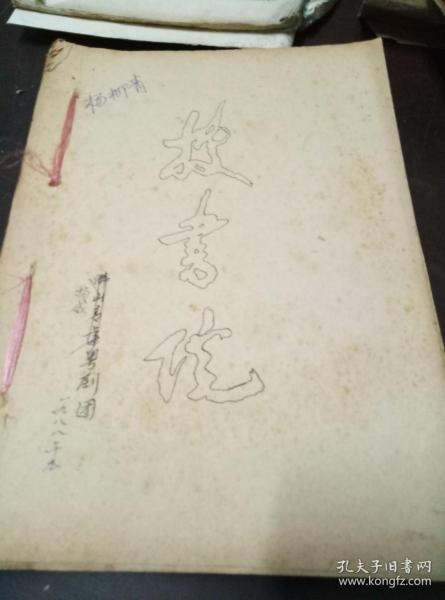 杨柳青
搜书院
青年粤剧团
一九八八年本
孔夫子旧书网
www.kongfz.com